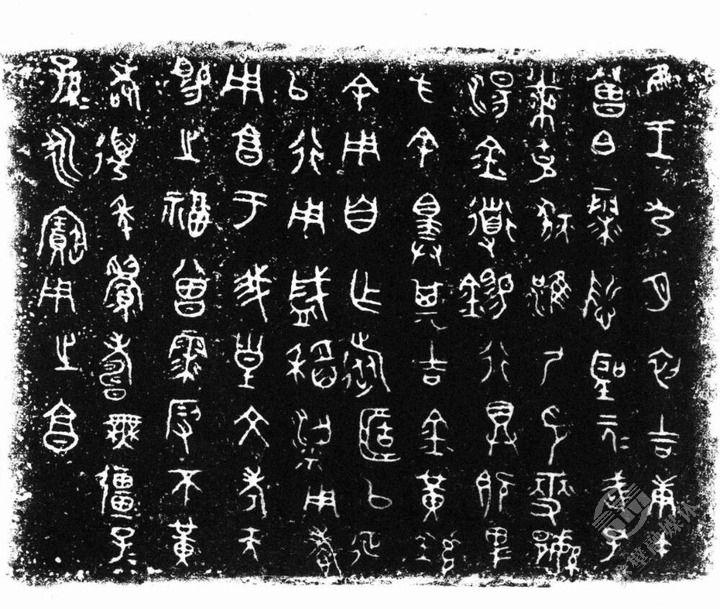 隹王九月初吉庚午
曾白霥哲聖元=武=孔
黹克狄淮尸印燮繁
湯金道錫行具既卑
方余擇其吉金黃鋁
余用自乍旅𠤳以征
以行用盛稻粱用孝
用亯于我皇文考天
賜之福曾霥叚不黃
耇邁年眉壽無彊子=
孫=永寶用之亯